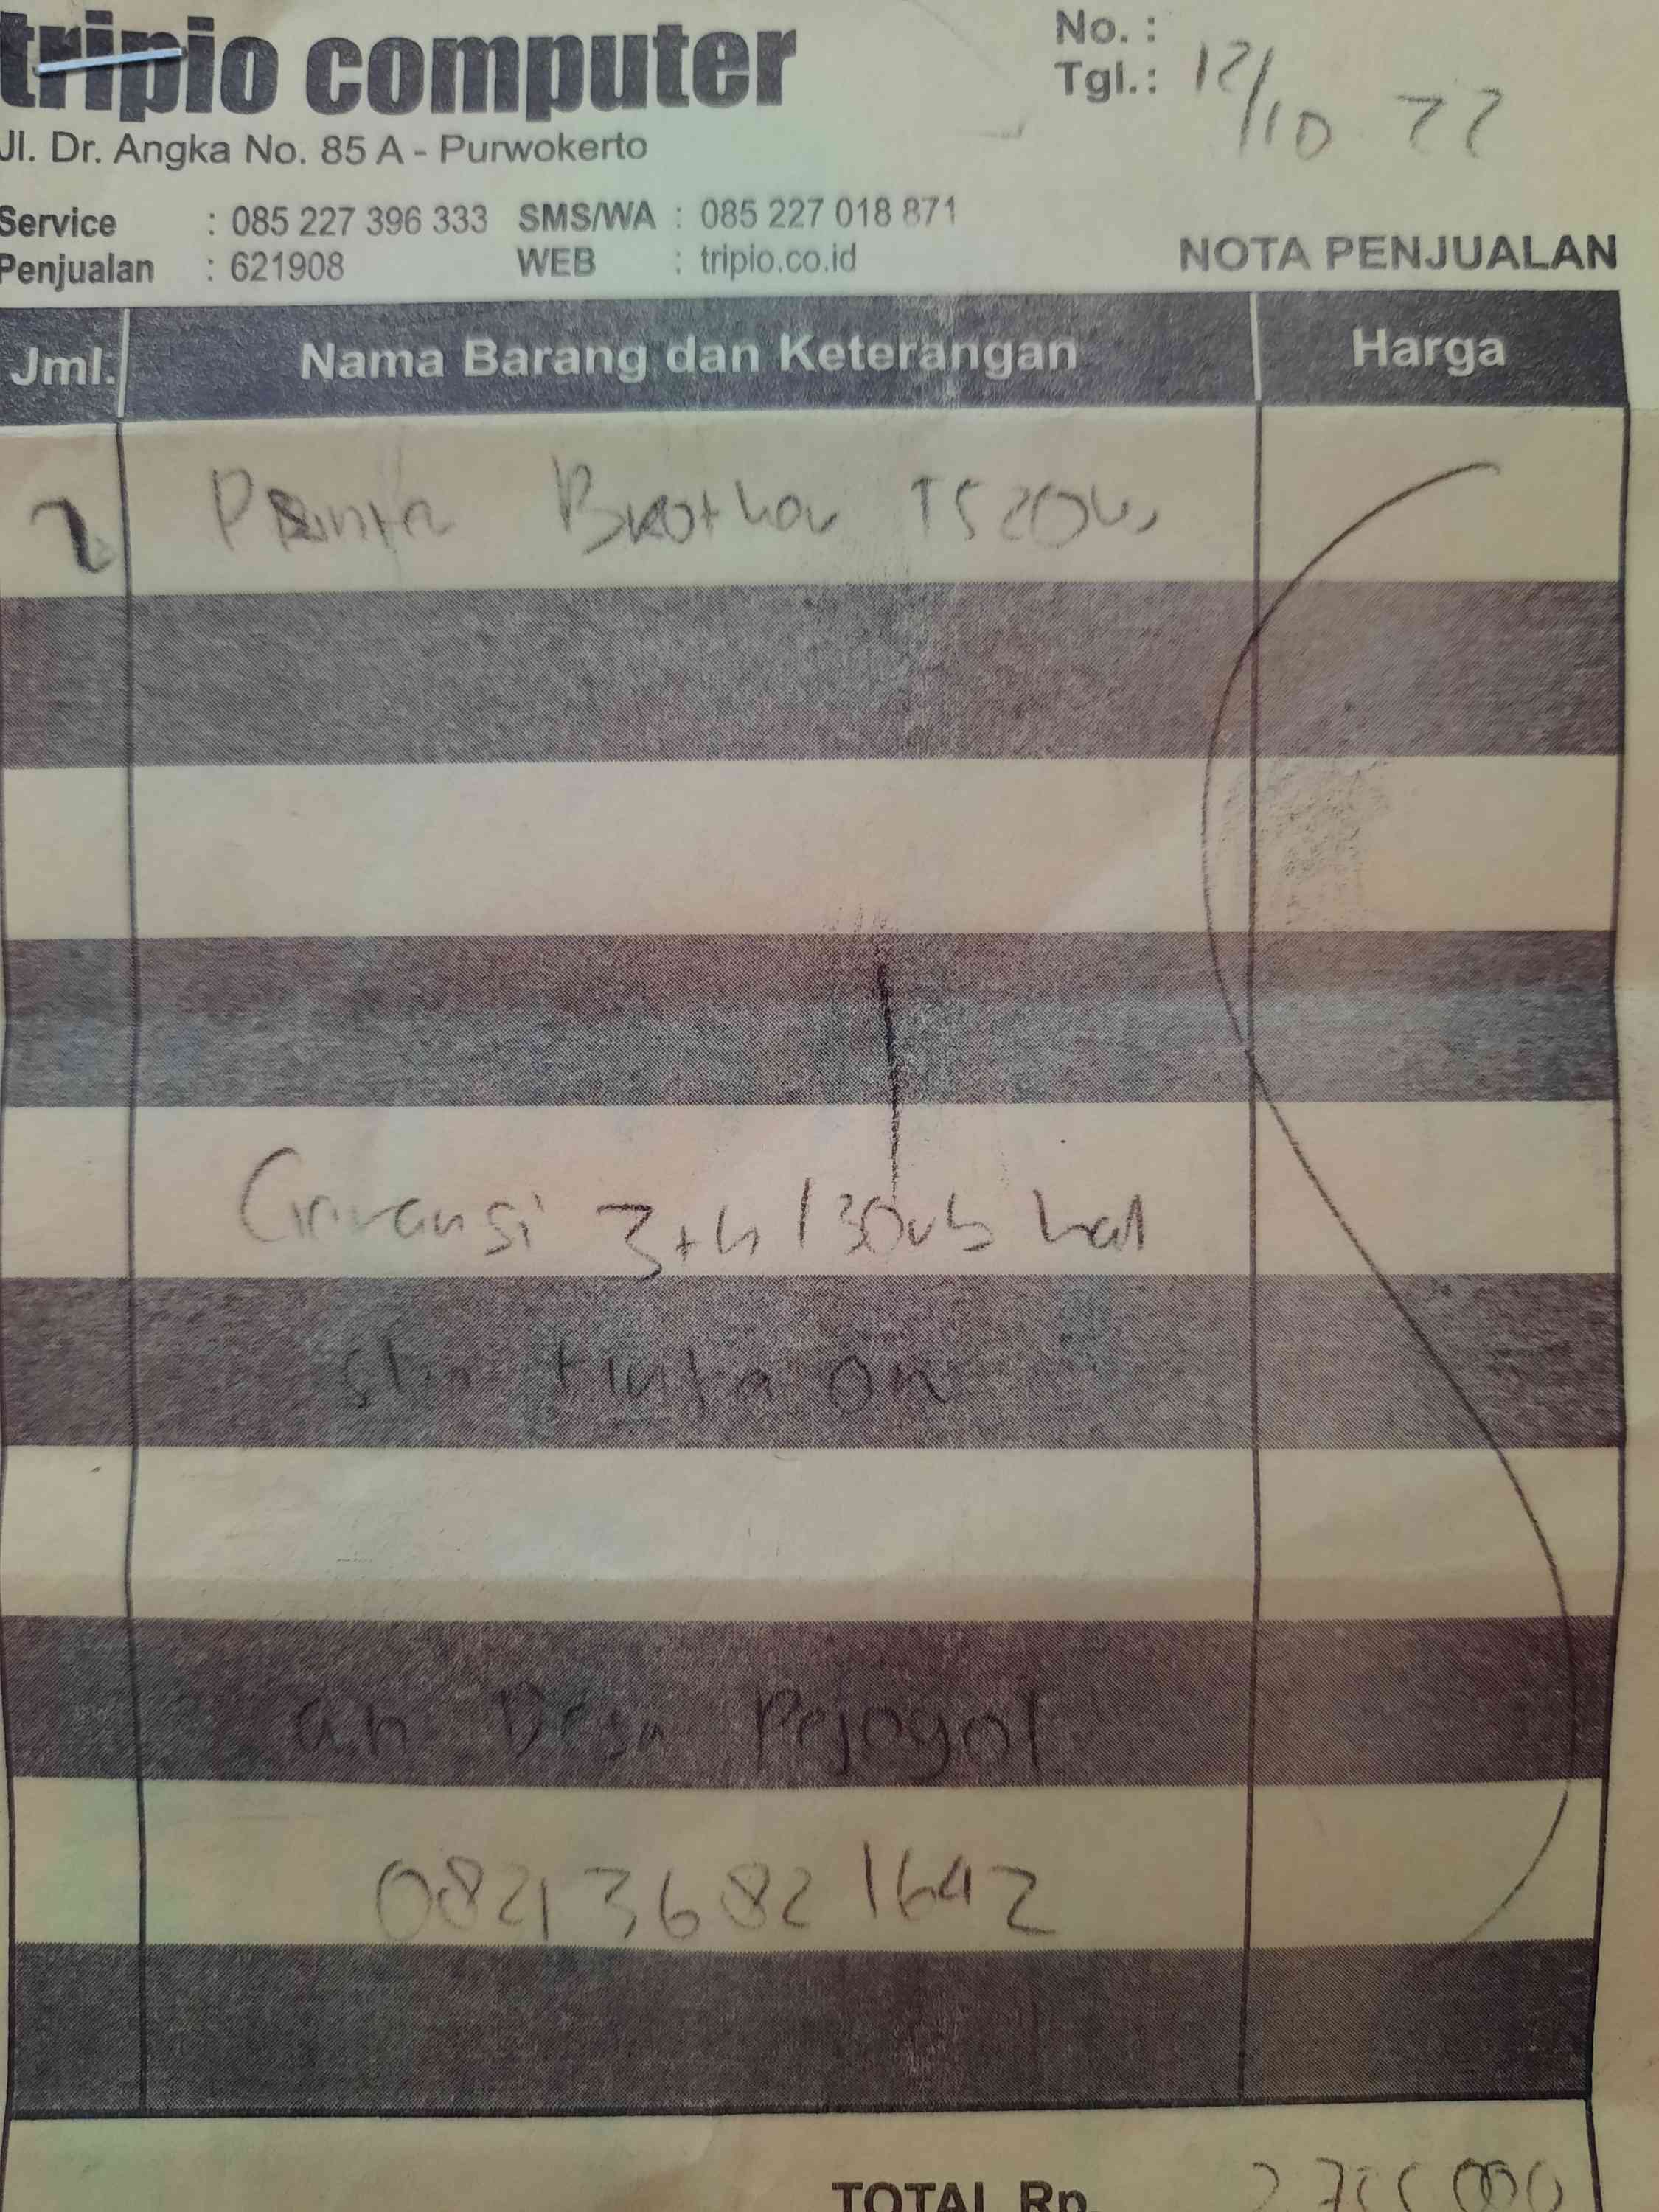 tripio computer
Jl. Dr. Angka No. 85 A - Purwokerto
No. :
Tgl. : 12/10 22
Service : 085 227 396 333 SMS/WA : 085 227 018 871
Penjualan : 621908 WEB : tripio.co.id
NOTA PENJUALAN
Jml. Nama Barang dan Keterangan Harga
Brother T520W
Garansi 3th / 30rb hal
tinta on
an Desa Pejogol
082136821642
TOTAL Rp.